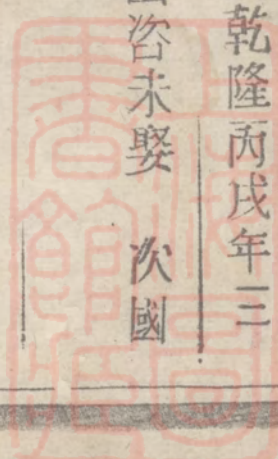 乾隆丙戌年三
咨未娶 次國